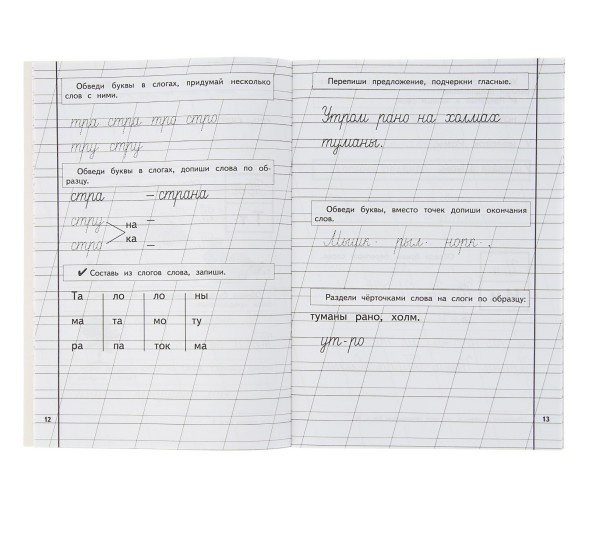 Обведи буквы в слогах, придумай несколько
слов с ними.
тра стра тро стро
тру стру
Обведи буквы в слогах, допиши слова по об-
разцу.
стра – страна
стру –
на
ка
стро –
✔ Составь из слогов слова, запиши.
Та ло ло ны
ма та мо ту
ра па ток ма
12
Перепиши предложение, подчеркни гласные.
Утром рано на холмах
туманы.
Обведи буквы, вместо точек допиши окончания
слов.
Мышк· рыл· норк·.
Раздели чёрточками слова на слоги по образцу:
туманы рано, холм.
ут-ро
13